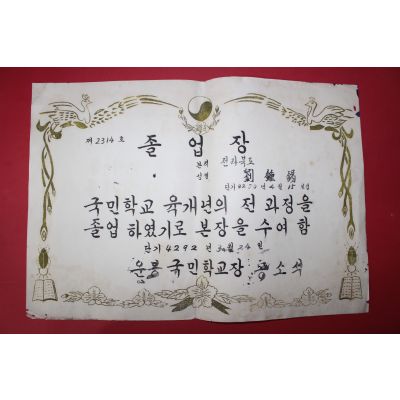 제2314호
졸업장
본적 전라북도
성명 劉
단기4280년4월15일생
국민학교 육개년의 전 과정을
졸업 하였기로 본장을 수여 함
단기4292년 3월24일
운봉 국민학교장 소석